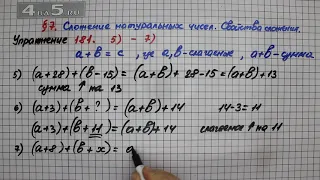 4 на 5.ru
§7. Сложение натуральных чисел. Свойства сложения.
Упражнение 181. 5) - 7)
a + b = c, где a, b - слагаемые, a+b - сумма
5) (a+28)+(b-15) = (a+b)+28-15 = (a+b)+13
сумма ↑ на 13
6) (a+3)+(b+?) = (a+b)+14 14-3=11
(a+3)+(b+11)=(a+b)+14 слагаемое ↑ на 11
7) (a+8)+(b+x) = a